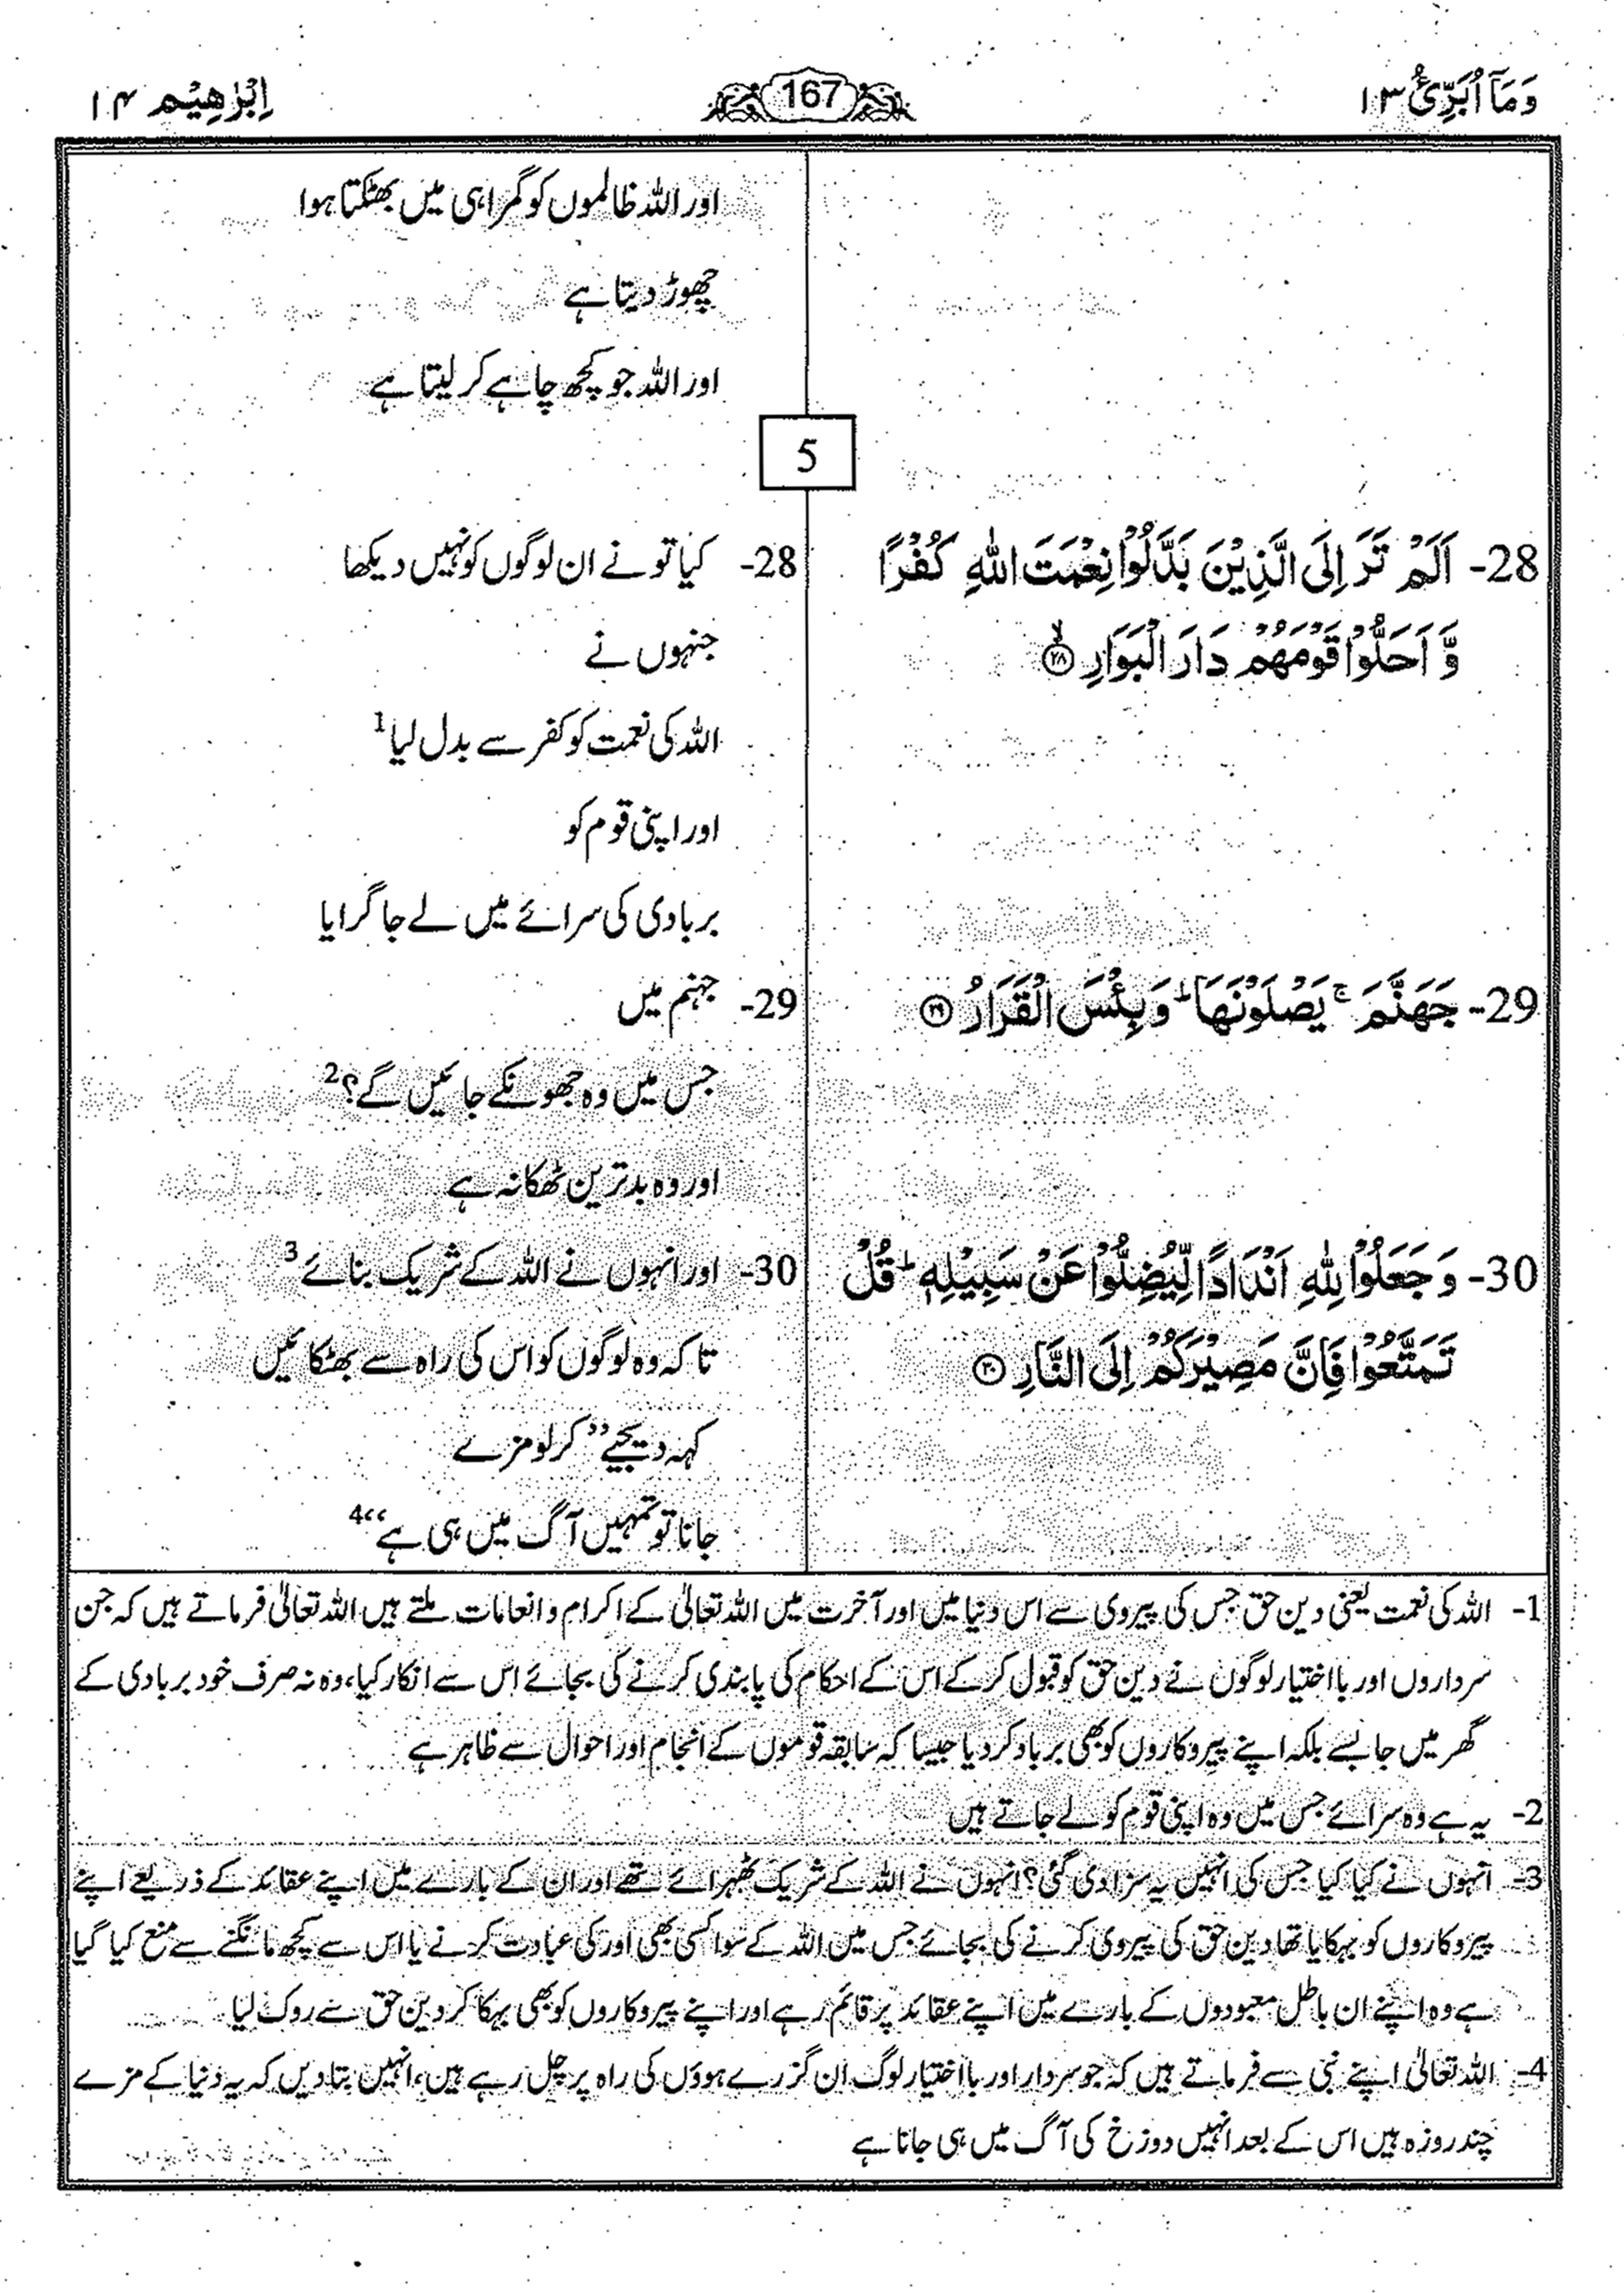 وَمَآ اُبَرِّئُ ۱۳
167
اِبْرٰهِيْم ۱۴
اور اللہ ظالموں کو گمراہی میں بھٹکتا ہوا
چھوڑ دیتا ہے
اور اللہ جو کچھ چاہے کر لیتا ہے
5
28- اَلَمْ تَرَ اِلَى الَّذِيْنَ بَدَّلُوْا نِعْمَتَ اللّٰهِ كُفْرًا
وَّ اَحَلُّوْا قَوْمَهُمْ دَارَ الْبَوَارِ ۙ‏﴿۲۸﴾
28- کیا تو نے ان لوگوں کو نہیں دیکھا
جنہوں نے
اللہ کی نعمت کو کفر سے بدل لیا1
اور اپنی قوم کو
بربادی کی سرائے میں لے جا گرایا
29- جَهَنَّمَ ۚ يَصْلَوْنَهَا ؕ وَ بِئْسَ الْقَرَارُ ﴿۲۹﴾
29- جہنم میں
جس میں وہ جھونکے جائیں گے؟2
اور وہ بدترین ٹھکانہ ہے
30- وَ جَعَلُوْا لِلّٰهِ اَنْدَادًا لِّيُضِلُّوْا عَنْ سَبِيْلِهٖ ؕ قُلْ
تَمَتَّعُوْا فَاِنَّ مَصِيْرَكُمْ اِلَى النَّارِ ﴿۳۰﴾
30- اور انہوں نے اللہ کے شریک بنائے3
تاکہ وہ لوگوں کو اس کی راہ سے بھٹکائیں
کہہ دیجیے ”کر لو مزے
جانا تو تمہیں آگ میں ہی ہے“4
1- اللہ کی نعمت یعنی دین حق جس کی پیروی سے اس دنیا میں اور آخرت میں اللہ تعالیٰ کے اکرام و انعامات ملتے ہیں اللہ تعالیٰ فرماتے ہیں کہ جن
سرداروں اور بااختیار لوگوں نے دین حق کو قبول کر کے اس کے احکام کی پابندی کرنے کی بجائے اس سے انکار کیا، وہ نہ صرف خود بربادی کے
گھر میں جا بسے بلکہ اپنے پیروکاروں کو بھی برباد کر دیا جیسا کہ سابقہ قوموں کے انجام اور احوال سے ظاہر ہے
2- یہ ہے وہ سرائے جس میں وہ اپنی قوم کو لے جاتے ہیں
3- انہوں نے کیا کیا جس کی انہیں یہ سزا دی گئی؟ انہوں نے اللہ کے شریک ٹھہرائے تھے اور ان کے بارے میں اپنے عقائد کے ذریعے اپنے
پیروکاروں کو بہکایا تھا دین حق کی پیروی کرنے کی بجائے جس میں اللہ کے سوا کسی بھی اور کی عبادت کرنے یا اس سے کچھ مانگنے سے منع کیا گیا
ہے وہ اپنے ان باطل معبودوں کے بارے میں اپنے عقائد پر قائم رہے اور اپنے پیروکاروں کو بھی بہکا کر دین حق سے روک لیا
4- اللہ تعالیٰ اپنے نبی سے فرماتے ہیں کہ جو سردار اور بااختیار لوگ ان گزرے ہوؤں کی راہ پر چل رہے ہیں، انہیں بتا دیں کہ یہ دنیا کے مزے
چند روزہ ہیں اس کے بعد انہیں دوزخ کی آگ میں ہی جانا ہے